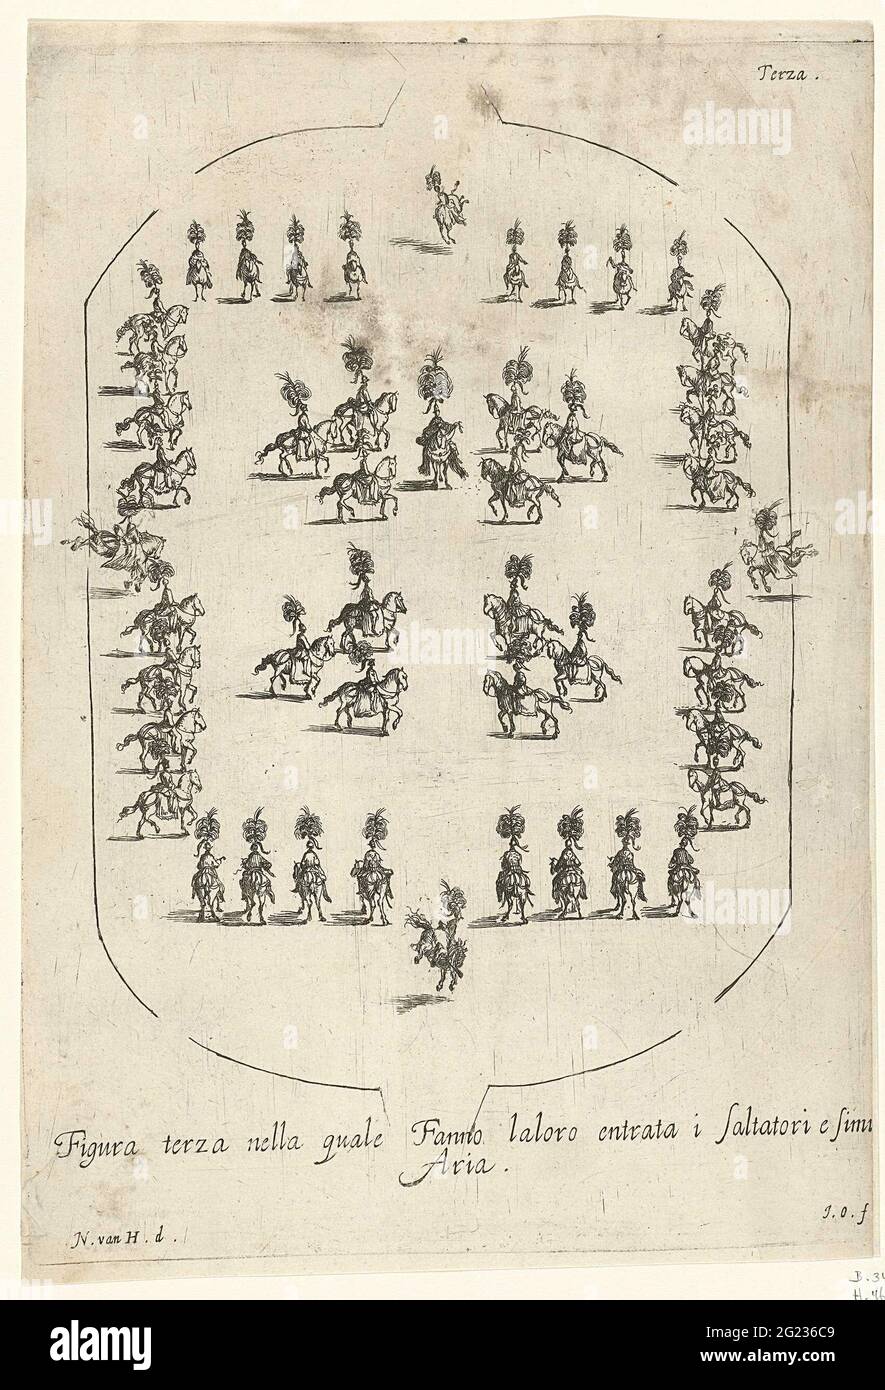 Terza .
Figura terza nella quale Fanno laloro entrata i saltatori e simu
Aria .
N. van H . d .
J. O. f
B. 34
H. 46
alamy
Image ID: 2G236C9
www.alamy.com